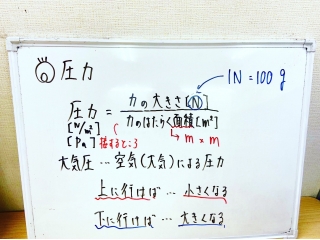 圧力
1N=100g
圧力 = 力の大きさ[N]
力のはたらく面積[m²]
[N/m²]
[Pa]
接するところ
m×m
大気圧…空気(大気)による圧力
上に行けば… 小さくなる
下に行けば… 大きくなる